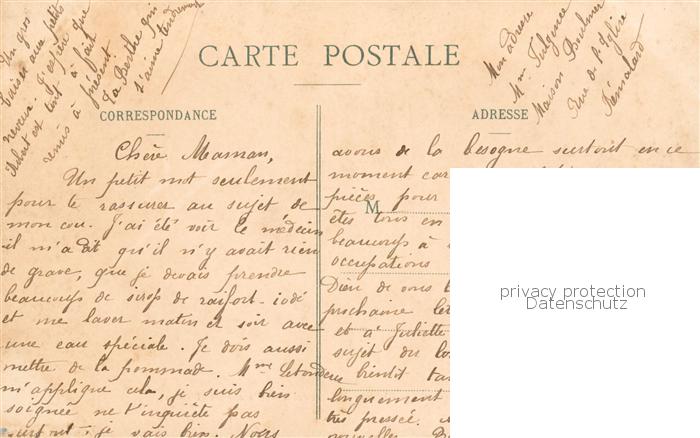 Un gros
baiser aux petits
neveux. J'espère que
Robert est tout à fait
remis à présent
Ta Berthe qui
t'aime tendrement
CARTE POSTALE
Mon adresse
Mme Fulgence
Maison
Rue de l'Eglise
Rémalard
CORRESPONDANCE
ADRESSE
Chère Maman,
Un petit mot seulement
pour te rassurer au sujet de
mon cou. J'ai été voir le médecin
il m'a dit qu'il n'y avait rien
de grave, que je devais prendre
beaucoup de sirop de raifort-iodé
et me laver matin et soir avec
une eau spéciale. Je dois aussi
mettre de la pommade. Mme
m'applique cela, je suis bien
soignée ne t'inquiète pas
surtout; je vais bien. Nous
avons de la besogne surtout en ce
moment car
pièces pour
M
êtes tous en
beaucoup à
occupations
Dieu de vous
prochaine
et à Juliette
sujet du
bientôt
longuement
très pressée.
nouvelles
privacy protection
Datenschutz